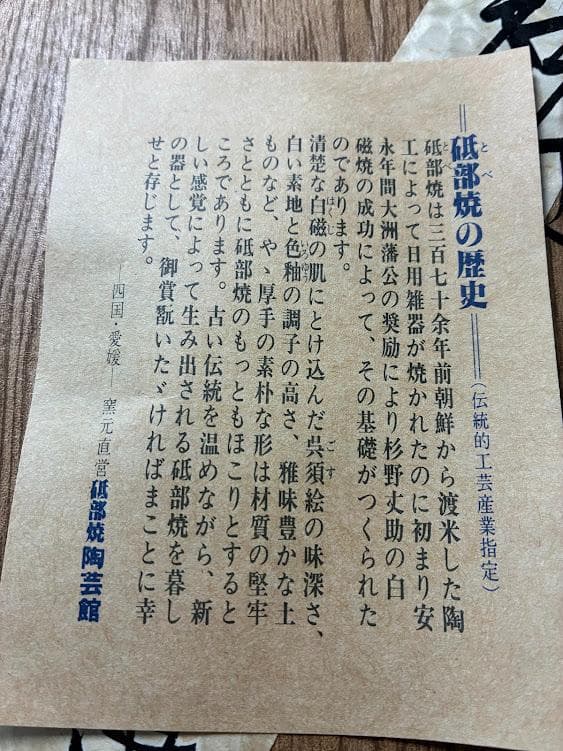 砥部焼の歴史(伝統的工芸産業指定)
砥部焼は三百七十余年前朝鮮から渡米した陶
工によって日用雑器が焼かれたのに初まり安
永年間大洲藩公の奨励により杉野丈助の白
磁焼の成功によって、その基礎がつくられた
のであります。
清楚な白磁の肌にとけ込んだ呉須絵の味深さ、
白い素地と色釉の調子の高さ、雅味豊かな土
ものなど、やゝ厚手の素朴な形は材質の堅牢
さとともに砥部焼のもっともほこりとすると
ころであります。古い伝統を温めながら、新
しい感覚によって生み出される砥部焼を暮し
の器として、御賞翫いたゞければまことに幸
せと存じます。
―四国・愛媛― 窯元直営 砥部焼陶芸館